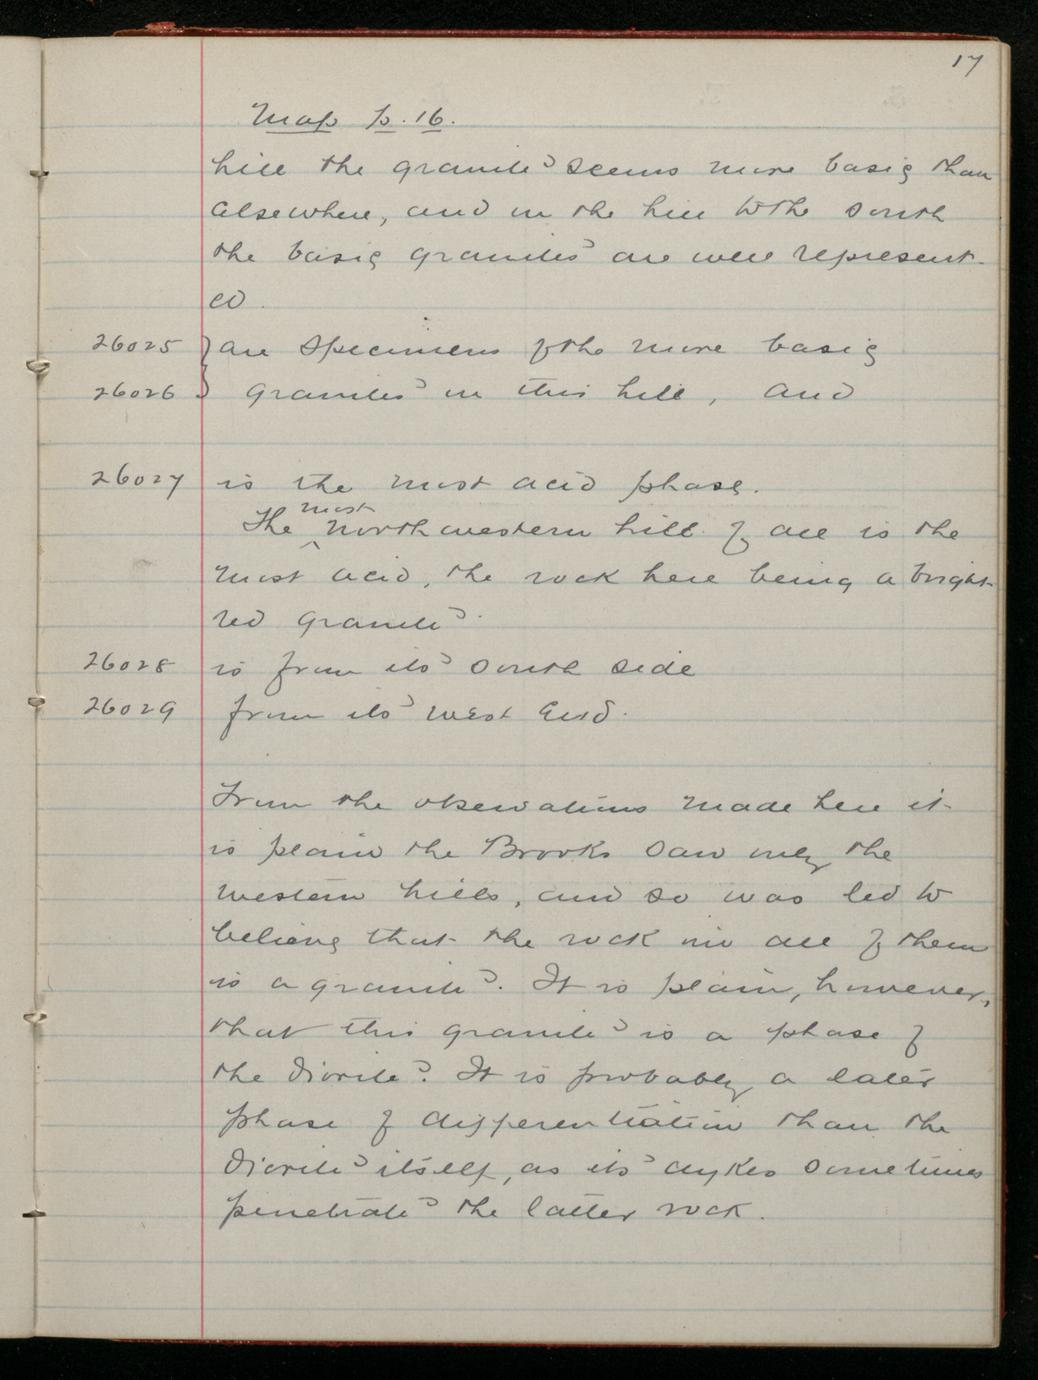 17
Map p. 16.
hill the granite seems more basic than
elsewhere, and in the hill to the south
the basic granites are well represent-
ed.
26025 } are specimens of the more basic
26026 } granites in this hill, and
26027 is the most acid phase.
most
The ^ northwestern hill of all is the
most acid, the rock here being a bright
red granite.
26028 is from its south side
26029 from its west end.
From the observations made here it
is plain the Brooks saw only the
western hills, and so was led to
believe that the rock in all of them
is a granite. It is plain, however,
that this granite is a phase of
the diorite. It is probably a later
phase of differentiation than the
diorite itself, as its dykes sometimes
penetrate the latter rock.